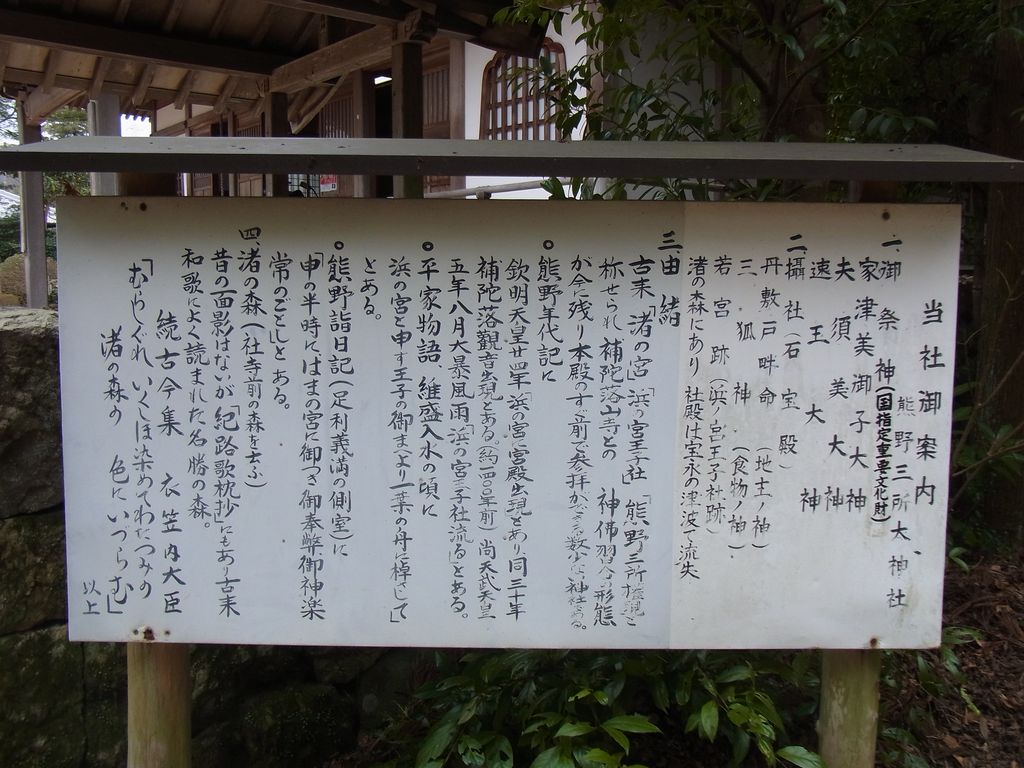 当社御案内
熊野三所大神社
一、御祭神(国指定重要文化財)
家津美御子大神
夫須美大神
速玉大神
二、攝社(石宝殿)
丹敷戸畔命(地主ノ神)
三狐神(食物ノ神)
若宮跡(浜ノ宮王子社跡)
渚の森にあり 社殿は宝永の津波で流失
三、由緒
古来「渚の宮」「浜の宮王子社」「熊野三所権現と
称せられ、補陀落山寺との 神佛習合の形態
が今に残り本殿のすぐ前で参拝ができる数少い神社である。
○熊野年代記に
欽明天皇廿四年「浜の宮宮殿出現」とあり同三十年
補陀落觀音出現とある。(約一四〇〇年前) 尚天武天皇
五年八月大暴風雨「浜の宮王子社流る」とある。
○平家物語、維盛入水の頃に
浜の宮と申す王子の御まへより一葉の舟に棹さして」
とある。
○熊野詣日記(足利義満の側室)に
「申の半時にはまの宮に御つき御奉幣御神楽
常のごとし」とある。
四、渚の森(社寺前の森を云ふ)
昔の面影はないが「紀路歌枕抄」にもあり古来
和歌によく読まれた名勝の森。
続古今集 衣笠内大臣
「むらしぐれ いくしほ染めてわたつみの
渚の森の 色にいづらむ」
以上